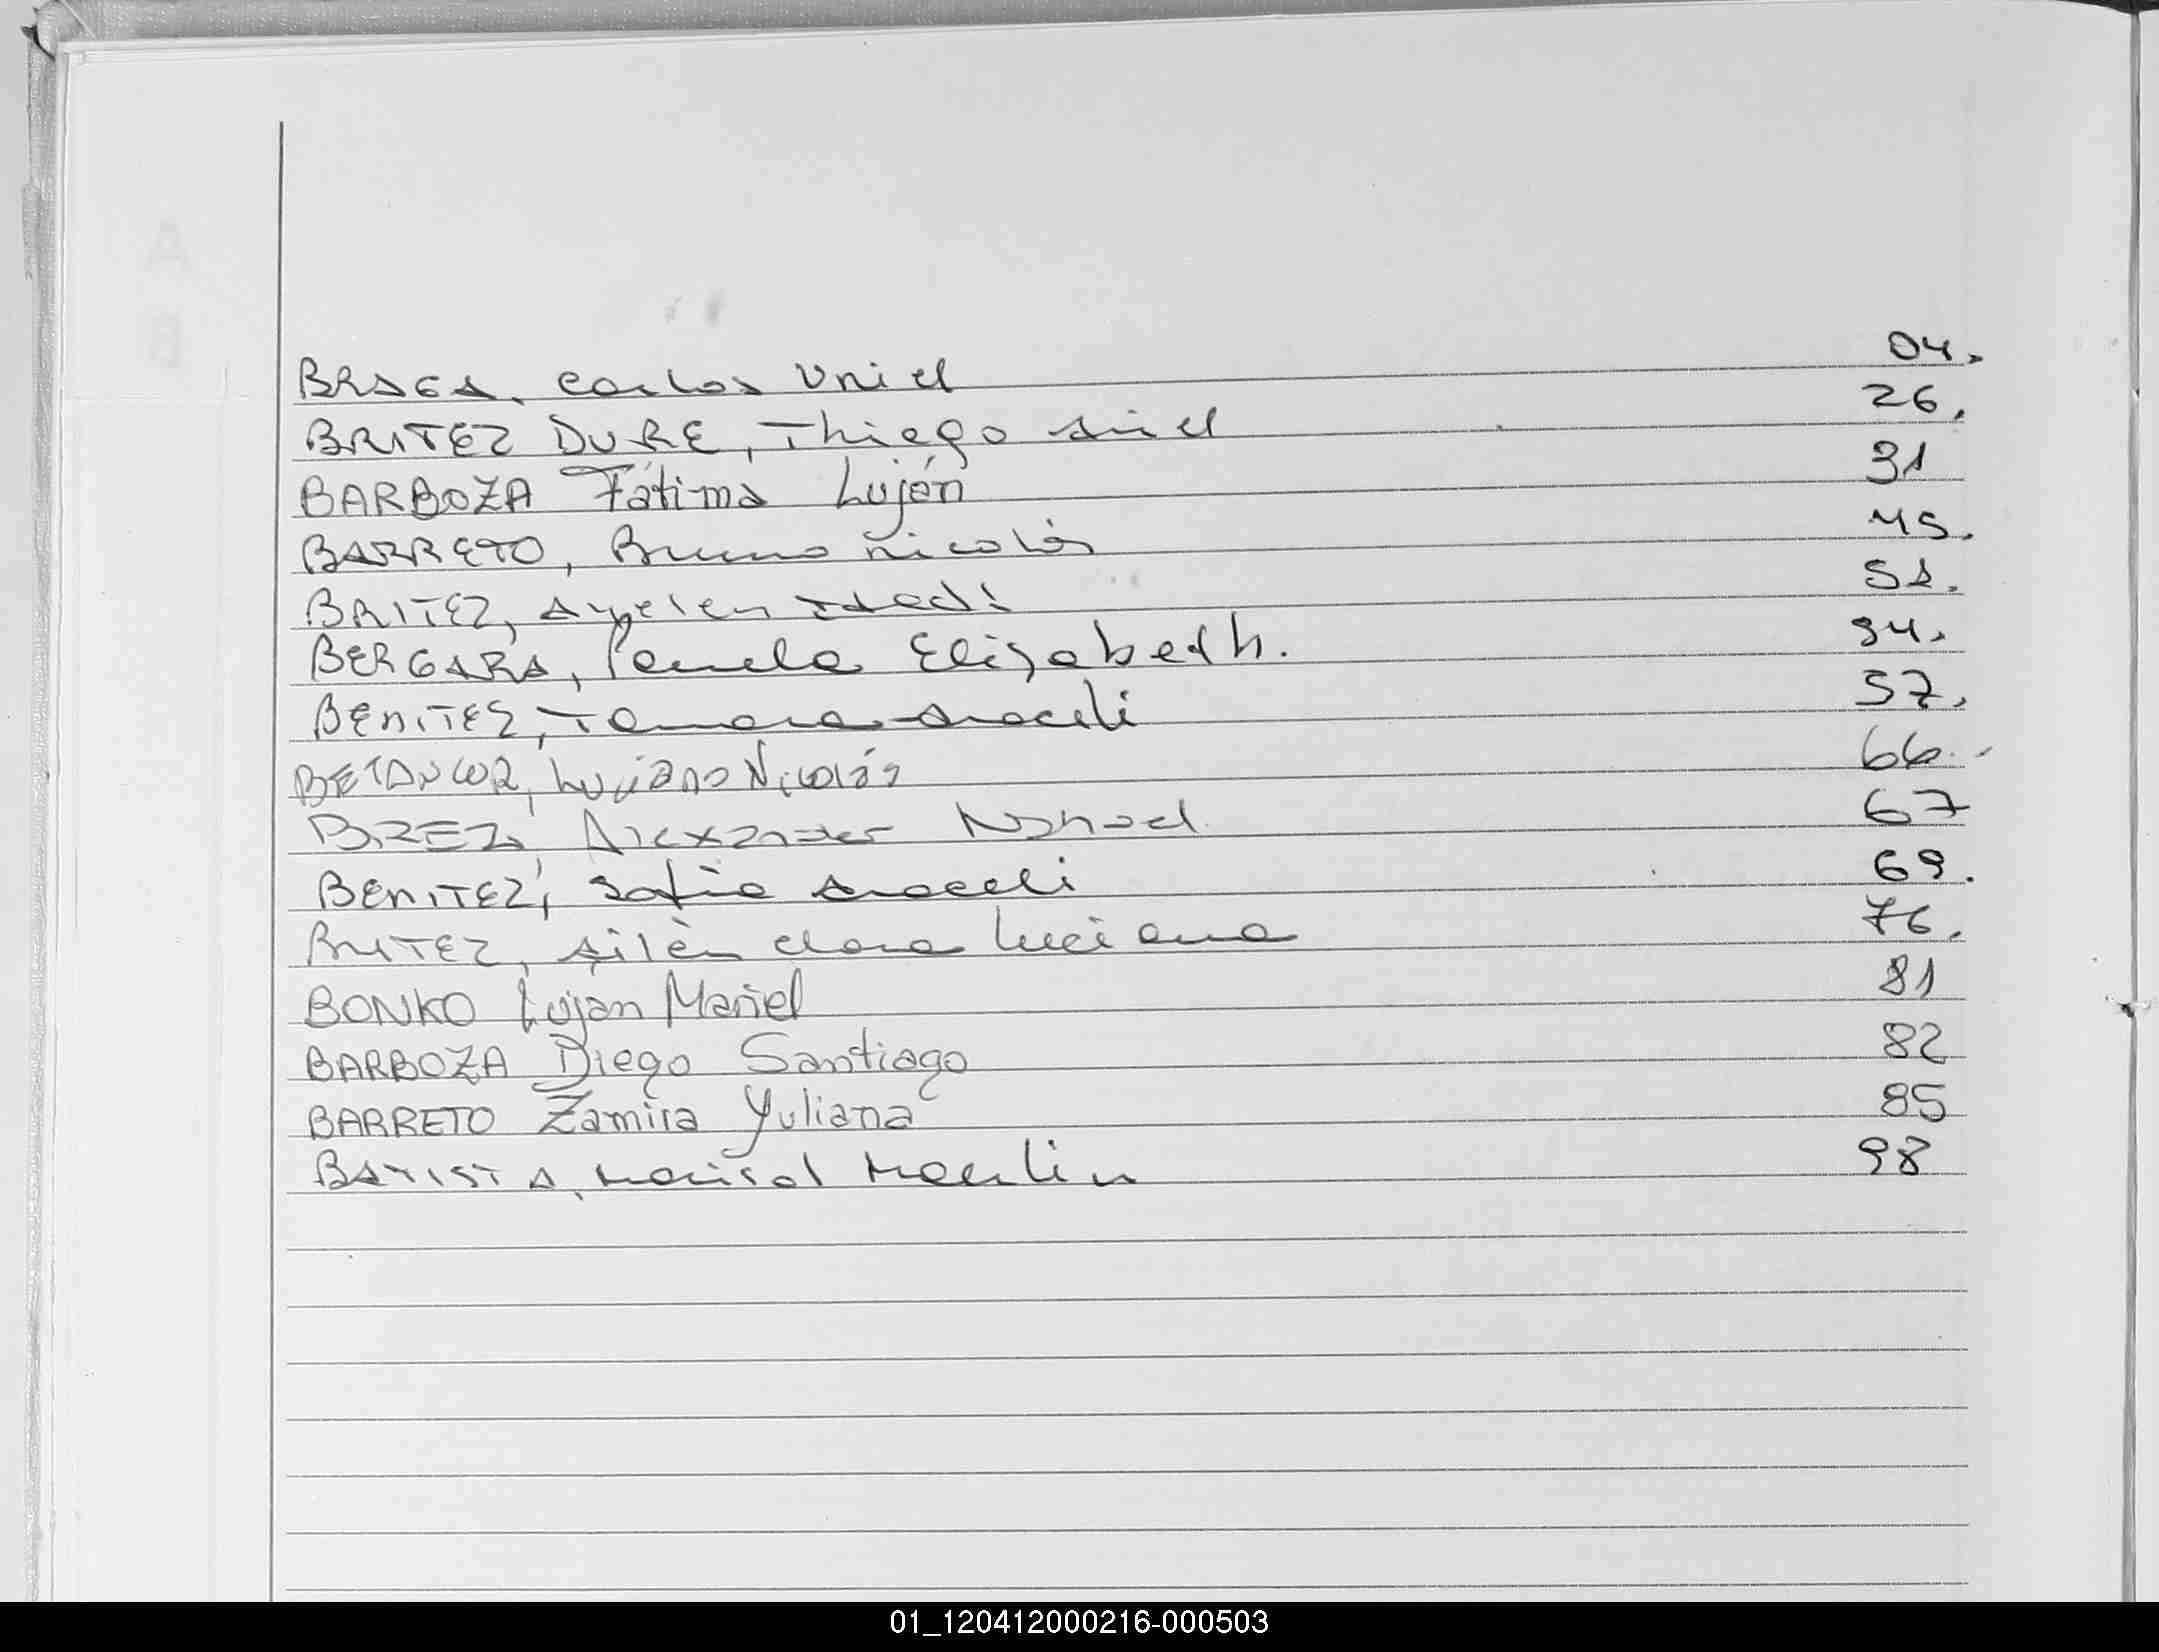 BRAGA, Carlos Uriel 04.
BRITEZ DURE, Thiego Ariel 26.
BARBOZA Fátima Luján 31
BARRETO, Bruno Nicolás 45.
BRITEZ, Ayelen 51.
BERGARA, Pamela Elizabeth. 54.
BENITEZ, Tamara Araceli 57.
BETANCOR, Luciano Nicolás 66.
Alexander Nahuel 67
BENITEZ, Sofia Araceli 69.
BRITEZ, Ailèn Clara Luciana 76.
BONKO Lujan Mariel 81
BARBOZA Diego Santiago 82
BARRETO Zamira Yuliana 85
BATISTA, Marisol 98
01_120412000216-000503